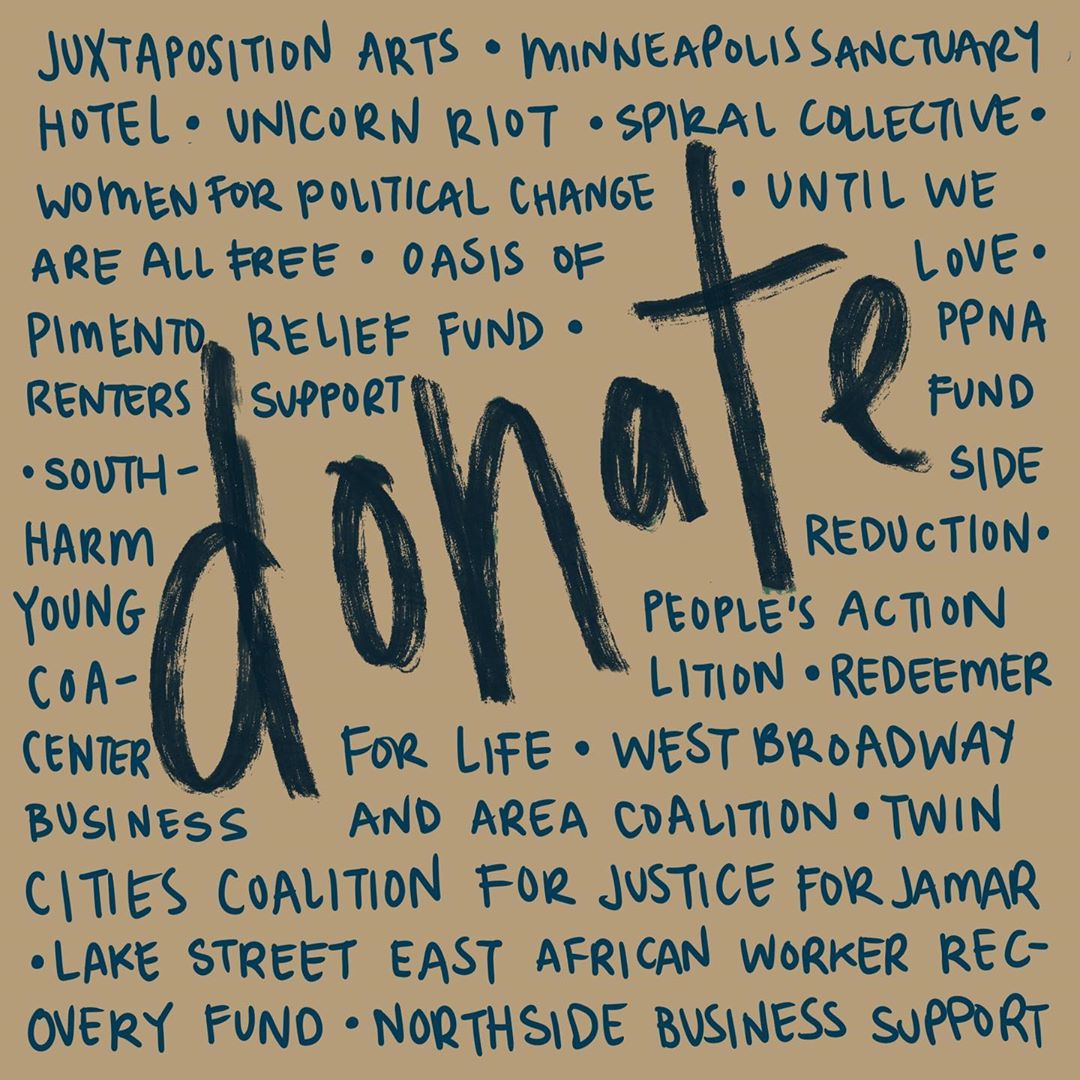 JUXTAPOSITION ARTS • MINNEAPOLIS SANCTUARY
HOTEL • UNICORN RIOT • SPIRAL COLLECTIVE •
WOMEN FOR POLITICAL CHANGE • UNTIL WE
ARE ALL FREE • OASIS OF LOVE •
PIMENTO RELIEF FUND • PPNA
RENTERS SUPPORT FUND
• SOUTH- SIDE
HARM REDUCTION •
YOUNG PEOPLE'S ACTION
COA- LITION • REDEEMER
CENTER FOR LIFE • WEST BROADWAY
BUSINESS AND AREA COALITION • TWIN
CITIES COALITION FOR JUSTICE FOR JAMAR
• LAKE STREET EAST AFRICAN WORKER REC-
OVERY FUND • NORTHSIDE BUSINESS SUPPORT
donate